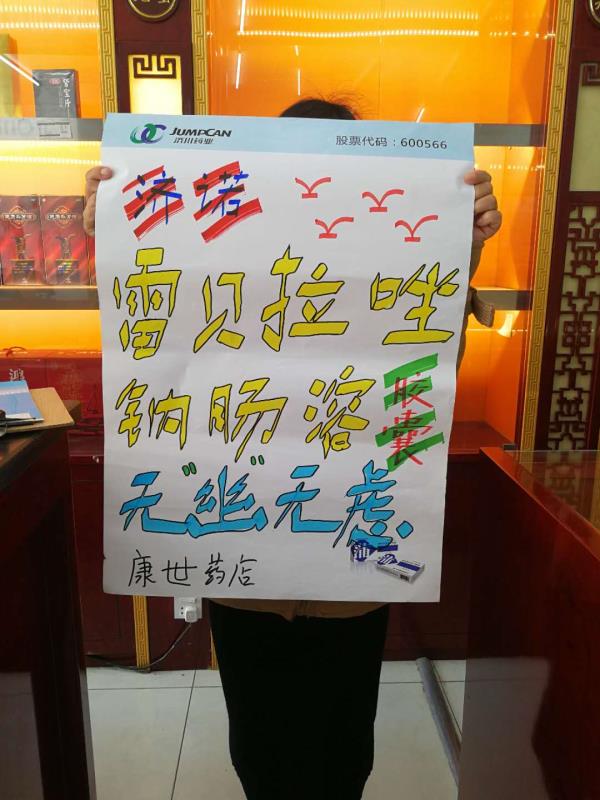 JUMPCAN
济川药业
股票代码：600566
济诺
雷贝拉唑
钠肠溶胶囊
无"幽"无虑.
康世药店